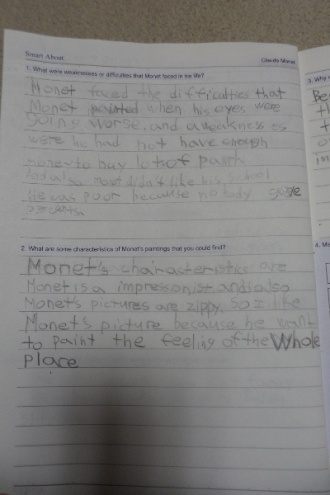 Smart About Claude Monet
1. What were weaknesses or difficulties that Monet faced in his life?
Monet faced the difficulties that
Monet painted when his eyes were
going worse, and weakness es
were he had not have enough
money to buy lot of paint
And also most didn't like his school
He was poor because nobody
2. What are some characteristics of Monet's paintings that you could find?
Monet's characteristics are
Monet is a impressionist and also
Monet's pictures are zippy. So I like
Monet's picture because he want
to paint the feeling of the Whole
place